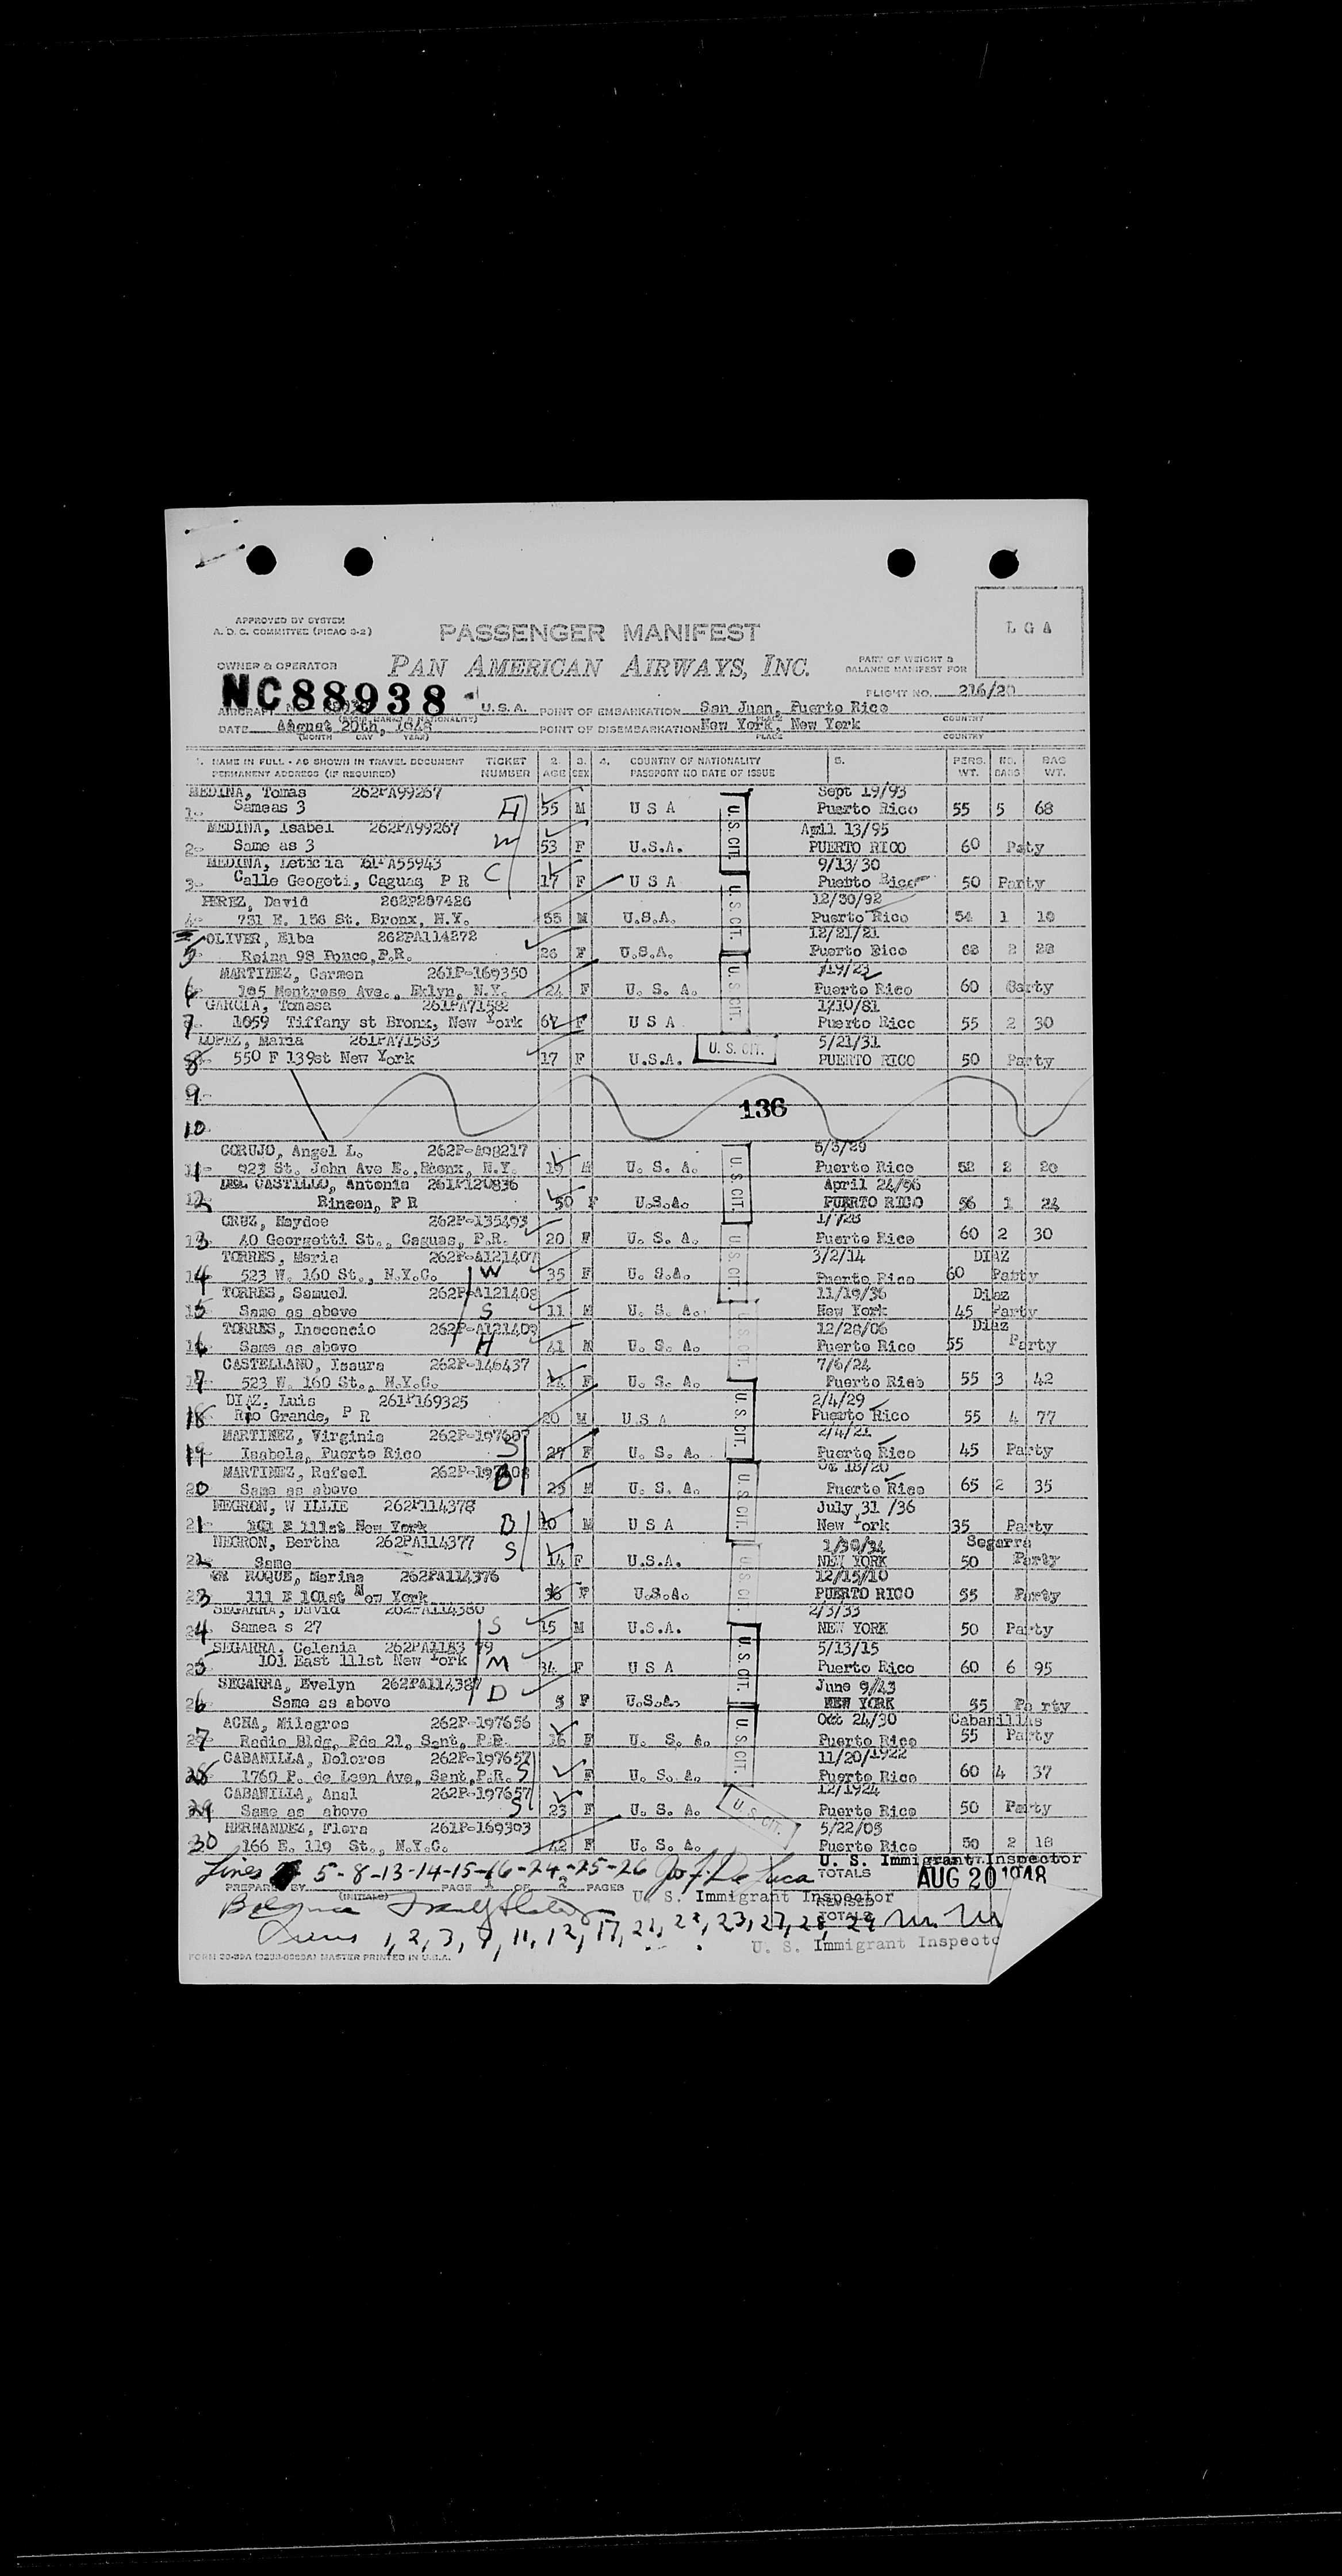 APPROVED BY SYSTEM
A. D. C. COMMITTEE (PICAO 3-2)
PASSENGER MANIFEST
L G A
OWNER & OPERATOR
PAN AMERICAN AIRWAYS, INC.
PART OF WEIGHT &
BALANCE MANIFEST FOR
NC88938
FLIGHT NO. 216/20
AIRCRAFT U.S.A. POINT OF EMBARKATION San Juan, Puerto Rico
DATE August 20th, 1948 POINT OF DISEMBARKATION New York, New York
(MONTH DAY YEAR) PLACE COUNTRY
1. NAME IN FULL - AS SHOWN IN TRAVEL DOCUMENT TICKET 2. 3. 4. COUNTRY OF NATIONALITY 5. PERS. NO. BAG
PERMANENT ADDRESS (IF REQUIRED) NUMBER AGE SEX PASSPORT NO DATE OF ISSUE WT. BAGS WT.
MEDINA, Tomas 262PA99267 Sept 19/93
1. Sameas 3 H 55 M U S A Puerto Rico 55 5 68
MEDINA, Isabel 262PA99267 April 13/95
2. Same as 3 W 53 F U.S.A. PUERTO RICO 60 Paty
MEDINA, Leticia 261PA55943 9/13/30
3. Calle Geogeti, Caguas P R C 17 F U S A Puerto Rico 50 Party
PEREZ, David 262P297426 12/30/92
4. 731 E. 156 St. Bronx, N.Y. 55 M U.S.A. Puerto Rico 54 1 10
OLIVER, Elba 262PA114272 12/21/21
5. Reina 98 Ponce, P.R. 26 F U.S.A. Puerto Rico 2 28
MARTINEZ, Carmen 261P-169350
6. 195 Montrose Ave., Bklyn, N.Y. 24 F U. S. A. Puerto Rico 60 Party
GARCIA, Tomasa 261PA71582 1/10/81
7. 1059 Tiffany st Bronx, New York 67 F U S A Puerto Rico 55 2 30
LOPEZ, Maria 261PA71583 5/21/31
8. 550 E 139st New York 17 F U.S.A. U. S. CIT. PUERTO RICO 50 Party
9.
136
10.
CORUJO, Angel L. 262P-A98217 5/3/29
11. 923 St. John Ave E., Bronx, N.Y. 19 M U. S. A. Puerto Rico 52 2 20
DEL CASTILLO, Antonia 261P120836 April 24/96
12. Rincon, P R 50 F U.S.A. PUERTO RICO 56 1 24
CRUZ, Haydee 262P-135493 1/7/28
13. 40 Georgetti St., Caguas, P.R. 20 F U. S. A. Puerto Rico 60 2 30
TORRES, Maria 262P-A121407 3/2/14 DIAZ
14. 523 W. 160 St., N.Y.C. W 35 F U. S.A. Puerto Rico 60 Party
TORRES, Samuel 262P-A121408 11/19/36 Diaz
15. Same as above S 11 M U. S. A. New York 45 Party
TORRES, Inocencio 262P-A121409 12/28/06 Diaz
16. Same as above H 41 M U. S. A. Puerto Rico 55 Party
CASTELLANO, Isaura 262P-146437 7/6/24
17. 523 W. 160 St., N.Y.C. F U. S. A. Puerto Rico 55 3 42
DIAZ, Luis 261P169325 2/4/29
18. Rio Grande, P R 20 M U S A Puerto Rico 55 4 77
MARTINEZ, Virginia 262P-197607 2/4/21
19. Isabela, Puerto Rico S 27 F U. S. A. Puerto Rico 45 Party
MARTINEZ, Rafael 262P-197608 18/20
20. Same as above B 25 M U. S. A. Puerto Rico 65 2 35
NEGRON, W ILLIE 262P114378 July 31 /36
21. 101 E 111st New York B 10 M U S A New York 35 Party
NEGRON, Bertha 262PA114377 1/30/34 Segarra
22. Same S 14 F U.S.A. NEW YORK 50 Party
ROQUE, Marina 262PA114376 12/15/10
23. 111 E 101st New York 36 F U.S.A. PUERTO RICO 55 Party
SEGARRA, David 262PA114380 2/3/33
24. Samea s 27 S 15 M U.S.A. NEW YORK 50 Party
SEGARRA, Celenia 262PA1143 79 5/13/15
25. 101 East 111st New York M 34 F U S A Puerto Rico 60 6 95
SEGARRA, Evelyn 262PA114387 June 9/43
26. Same as above D 5 F U.S.A. NEW YORK 35 Pa rty
ACHA, Milagros 262P-197656 Oct 24/30 Cabanillas
27. Radio Bldg, Pda 21, Sant, P.R. 16 F U. S. A. Puerto Rico 55 Party
CABANILLA, Dolores 262P-197657 11/20/1922
28. 1760 P. de Leon Ave, Sant, P.R. S F U. S. A. Puerto Rico 60 4 37
CABANILLA, Anal 262P-197657 12/1924
29. Same as above S 23 F U. S. A. U. S. CIT. Puerto Rico 50 Party
HERNANDEZ, Flora 261P-169303 5/22/05
30. 166 E. 119 St., N.Y.C. 42 F U. S. A. Puerto Rico 50 2 18
Lines 5-8-13-14-15-16-24-25-26 Jos. F. De Luca
U. S. Immigrant Inspector
TOTALS AUG 20 1948
PREPARED BY (INITIALS) PAGE 1 OF 2 PAGES U. S. Immigrant Inspector
REVISED TOTALS
Lines 1, 2, 3, 7, 11, 12, 17, 21, 22, 23, 27, 28, 29
U. S. Immigrant Inspecto